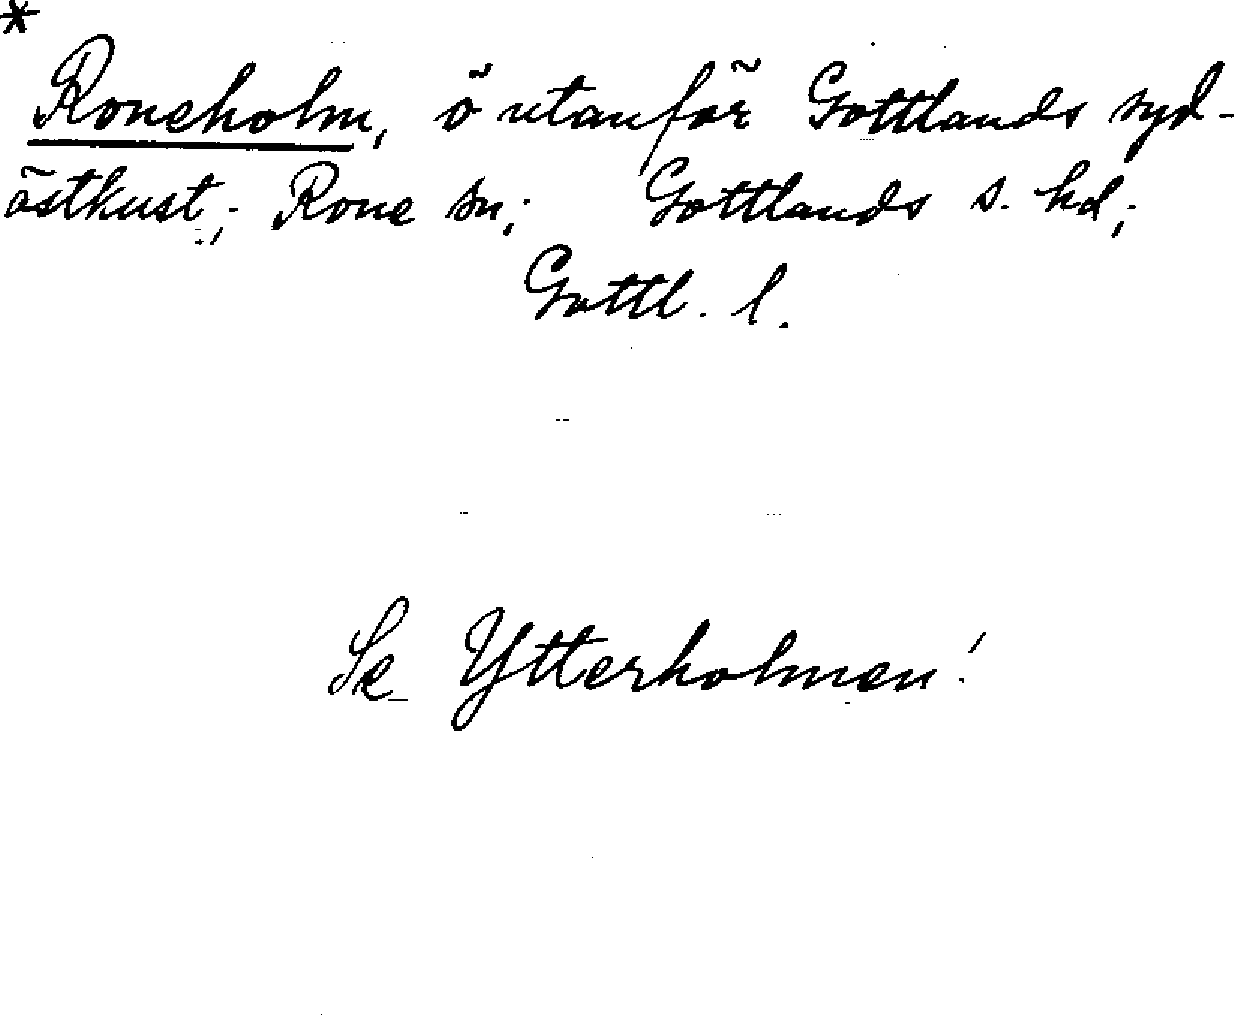 *
Roneholm, ö utanför Gottlands syd-
östkust; Rone sn; Gottlands s. hd;
Gottl. l.
Se Ytterholmen!